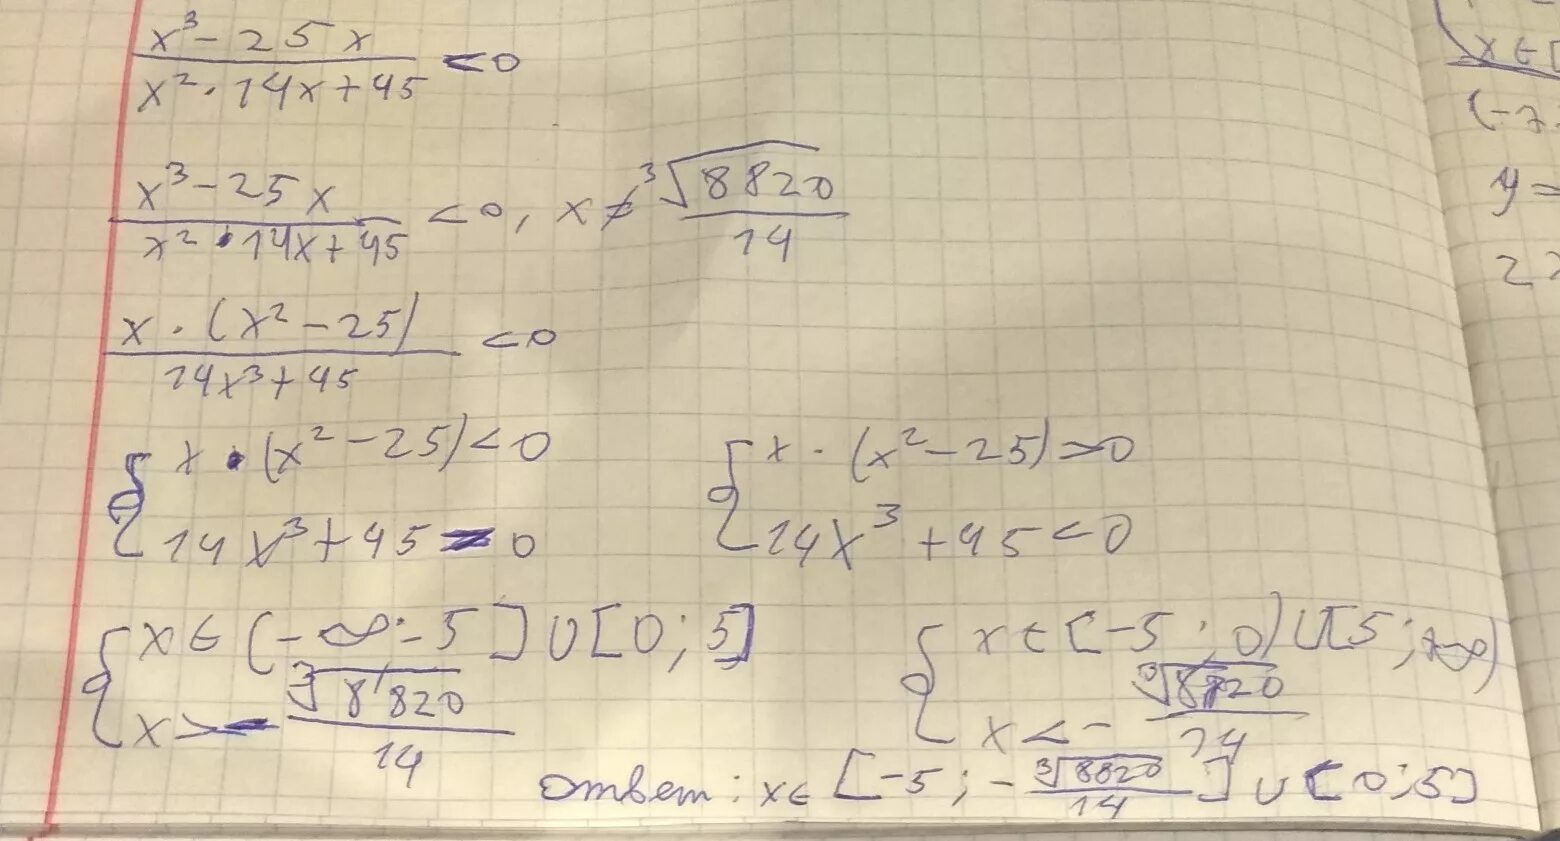 x³ - 25x / x² · 14x + 45 < 0
x³ - 25x / x² · 14x + 45 < 0, x ≠ ³√8820 / 14
x · (x² - 25) / 14x³ + 45 < 0
{ x · (x² - 25) < 0
14x³ + 45 > 0
{ x · (x² - 25) > 0
14x³ + 45 < 0
{ x ∈ (-∞; -5] ∪ [0; 5]
x > - ³√8820 / 14
{ x ∈ [-5; 0) ∪ [5; +∞)
x < - ³√8820 / 14
ответ: x ∈ [-5; - ³√8820 / 14] ∪ [0; 5]
x ∈ [
(-7
y =
2